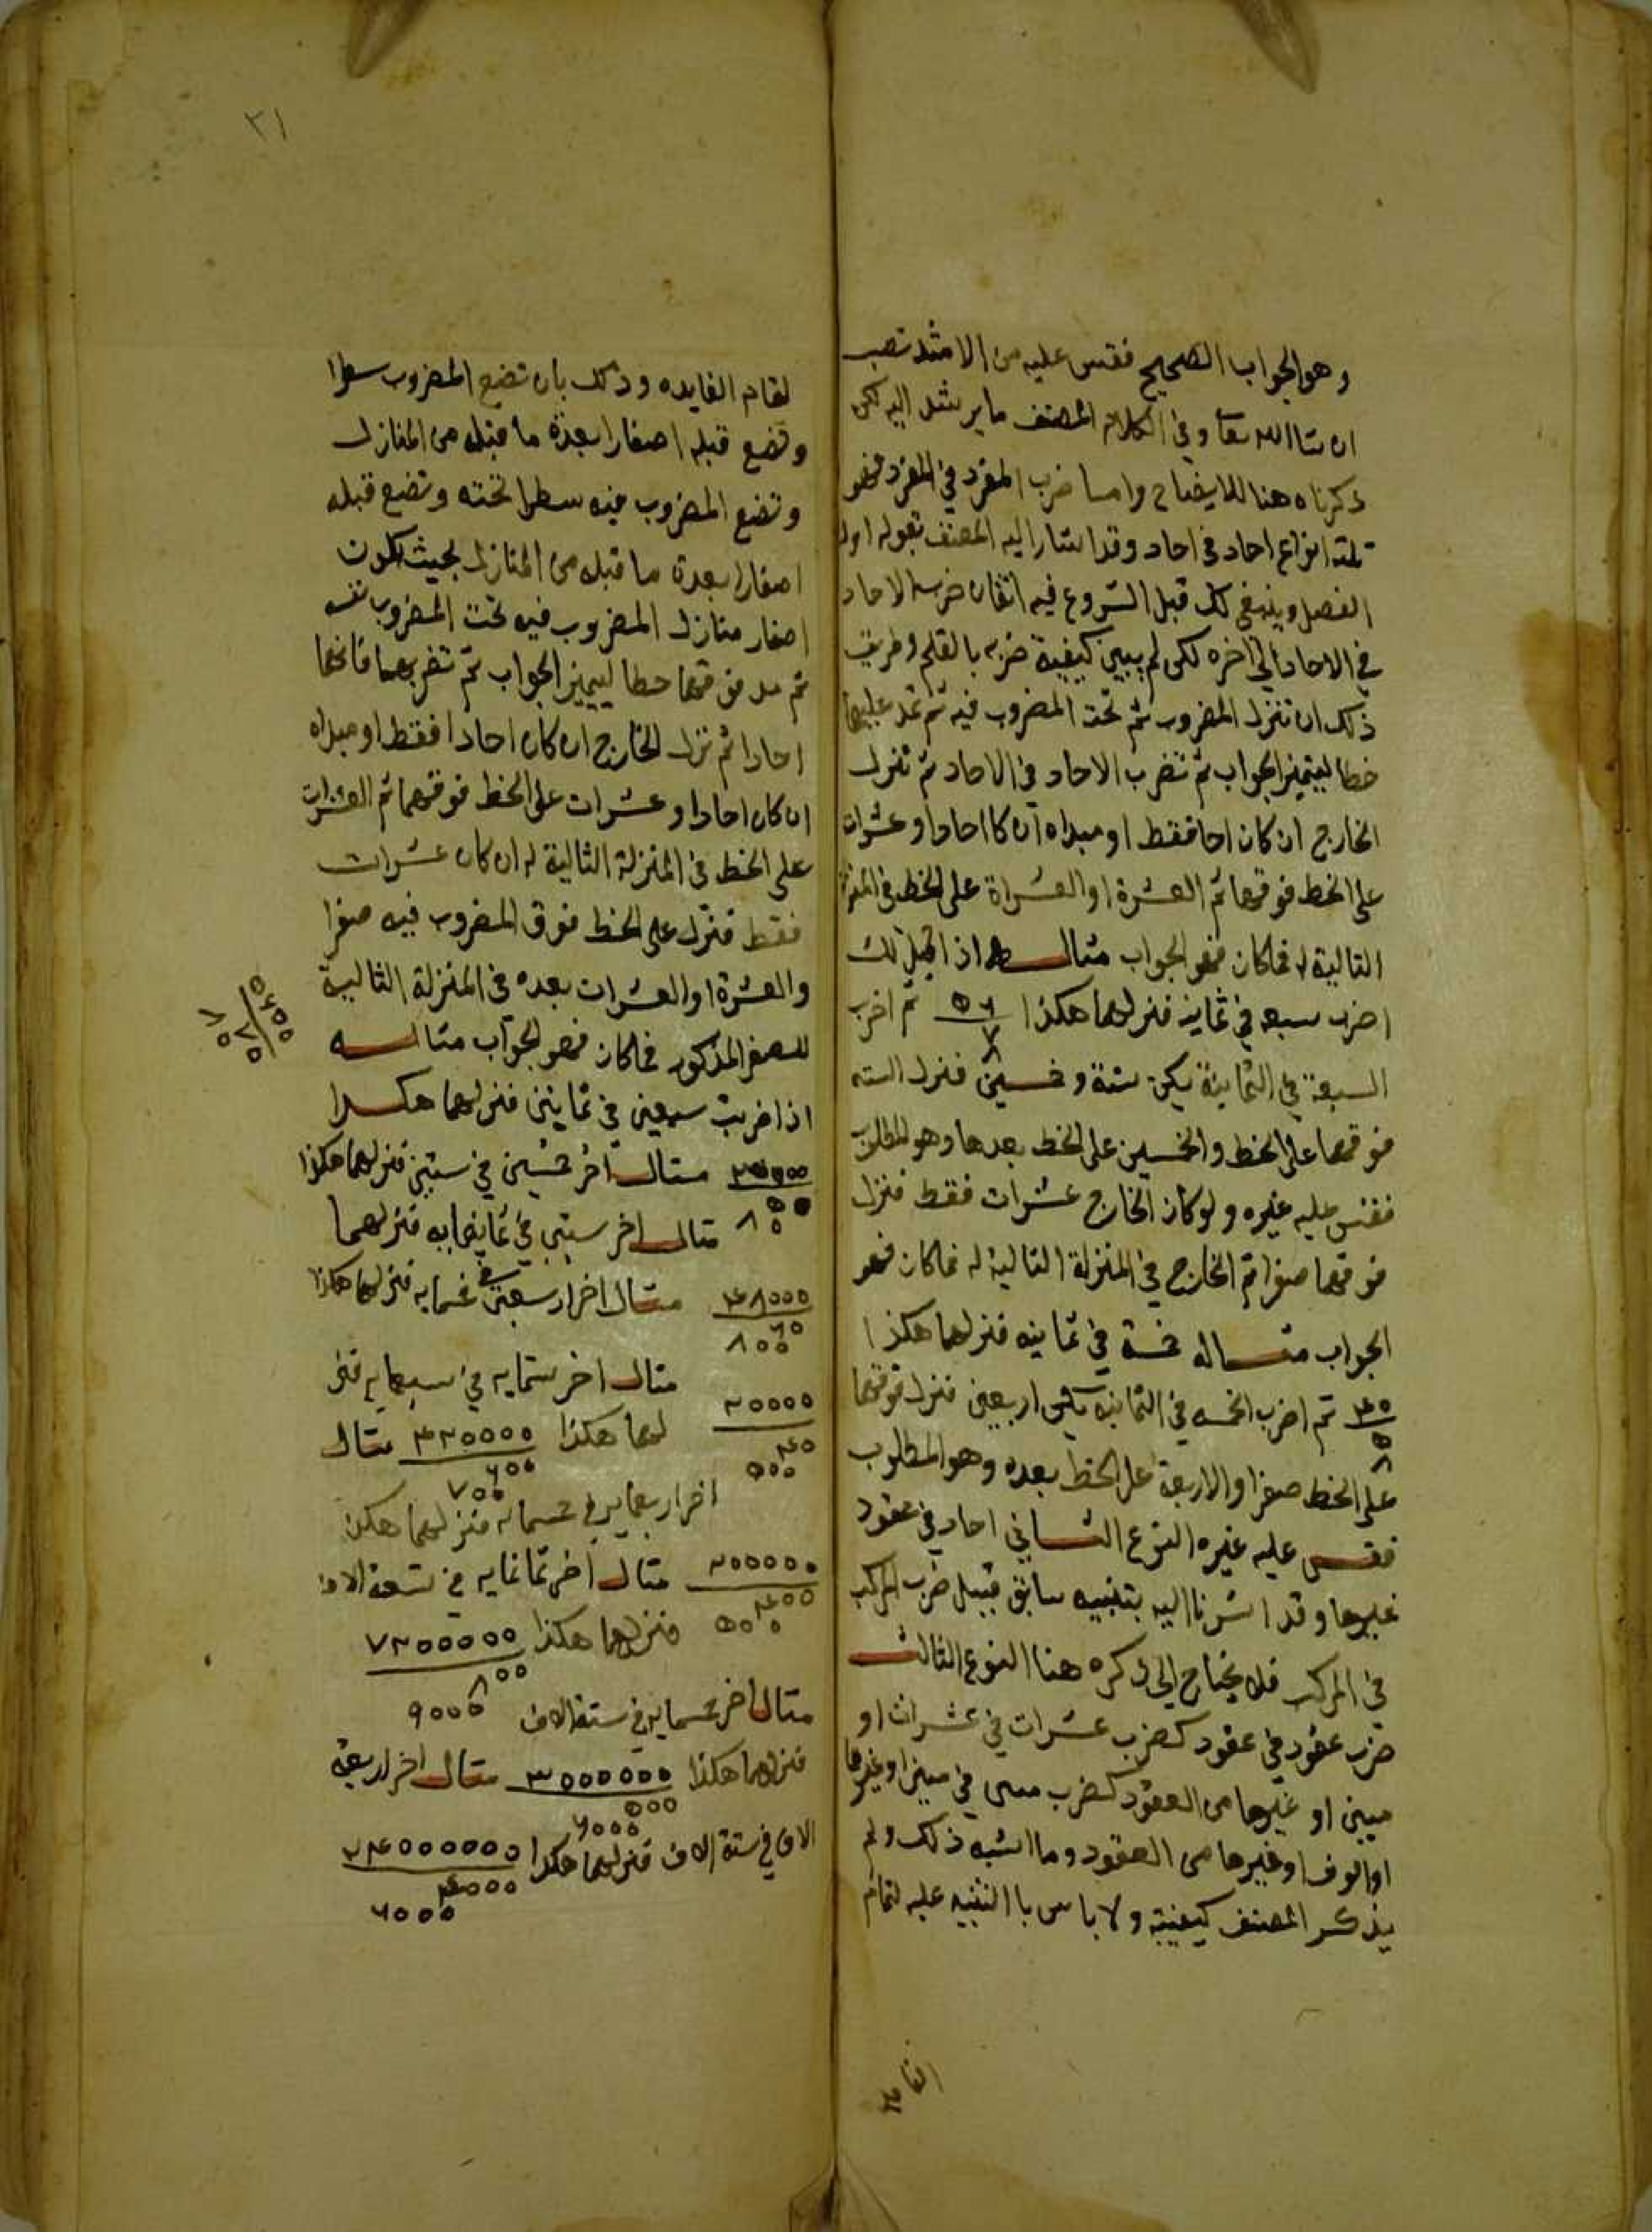 وهو الجواب الصحيح فقس عليه من الامثله تصب
ان شا الله تعا وفي الكلام المصنف ما يرشد اليه لكن
ذكرناه هنا للايضاح واما ضرب المفرد في المفرد فهو
ثلثه انواع احاد في احاد وقد اشار اليه المصنف بقوله اول
الفصل وينبغي لك قبل الشروع فيه اتقان ضرب الاحاد
في الاحاد الي اخره لكن لم يبين كيفية ضربه بالقلم وطريق
ذلك ان تنزل المضروب ثم تحته المضروب فيه ثم تمد عليهما
خطا ليتميز الجواب ثم تضرب الاحاد في الاحاد ثم تنزل
الخارج ان كان احا فقط او مبداه ان كا احادا وعشرات
على الخط فوقهما ثم العشرة او العشراة على الخط في المنزلة
التالية له فما كان فهو الجواب مثاله اذا قيل لك
اضرب سبعه في ثمانيه فنزلهما هكذا ٥٦ ثم اضرب
٧
٨
السبعة في الثمانية يكن ستة وخمسين فنزل السته
فوقهما على الخط والخمسين على الخط بعدها وهو المطلوب
فقس عليه غيره ولو كان الخارج عشرات فقط فنزل
فوقهما صفرا ثم الخارج في المنزلة التالية له فما كان فهو
الجواب مثاله خمسة في ثمانيه فنزلهما هكذا
۴٥ ثم اضرب الخمسه في الثمانيه يكن اربعين فنزل فوقهما
٥
٨
على الخط صفرا والاربعة على الخط بعده وهو المطلوب
فقس عليه غيره النوع الثاني احاد في عقود
غيرها وقد اشرنا اليه بتنبيه سابق قبيل ضرب المركب
في المركب فلا يحتاج الى ذكره هنا النوع الثالث
ضرب عقود في عقود كضرب عشرات في عشرات او
ميين او غيرها من العقود كضرب ميين في ميين او غيرها
او الوف او غيرها من العقود وما اشبه ذلك ولم
يذكر المصنف كيفيته ولا باس با التنبيه عليه لتمام
٣١
لتمام الفايده وذلك بان تضع المضروب سطرا
وتضع قبله اصفارا بعدة ما قبله من المنازل
وتضع المضروب فيه سطرا تحته وتضع قبله
اصفارا بعدة ما قبله من المنازل بحيث تكون
اصفار منازل المضروب فيه تحت المضروب نفسه
ثم مد فوقهما خطا ليتميز الجواب ثم تضربهما كانهما
احادا ثم نزل الخارج ان كان احادا فقط او مبداه
ان كان احادا وعشرات على الخط فوقهما ثم العشرات
على الخط في المنزلة التالية له ان كان عشرات
فقط فنزل على الخط فوق المضروب فيه صفرا
والعشرة او العشرات بعده في المنزلة التالية
للصفر المذكور فما كان فهو الجواب مثاله
٥٦٥٥
٧٥
٨٥
اذا ضربت سبعين في ثمانين فنزلهما هكذا
مثال اخر خمسين في ستين فنزلهما هكذا
مثال اخر ستين في ثمانمايه فنزلهما
۴٨٥٥٥ مثال اخر اربعين في خمسمايه فنزلهما هكذا
٦٥
٨٥٥
مثال اخر ستمايه في سبعمايه فنز
٢٥٥٥٥
۴٥
٥٥٥
لهما هكذا ۴٢٥٥٥٥ مثال
٦٥٥
٧٥٥
اخر اربعمايه في خمسمايه فنزلهما هكذا
٢٥٥٥٥٥ مثال اخر ثمانمايه في تسعة الاف
۴٥٥
٥٥٥
فنزلهما هكذا ٧٢٥٥٥٥٥
٨٥٥
٩٥٥٥
مثال اخر خمسمايه في ستة الاف
فنزلهما هكذا ٣٥٥٥٥٥٥ مثال اخر اربعة
٥٥٥
٦٥٥٥
الاف في ستة الاف فنزلهما هكذا ٢۴٥٥٥٥٥٥
۴٥٥٥
٦٥٥٥